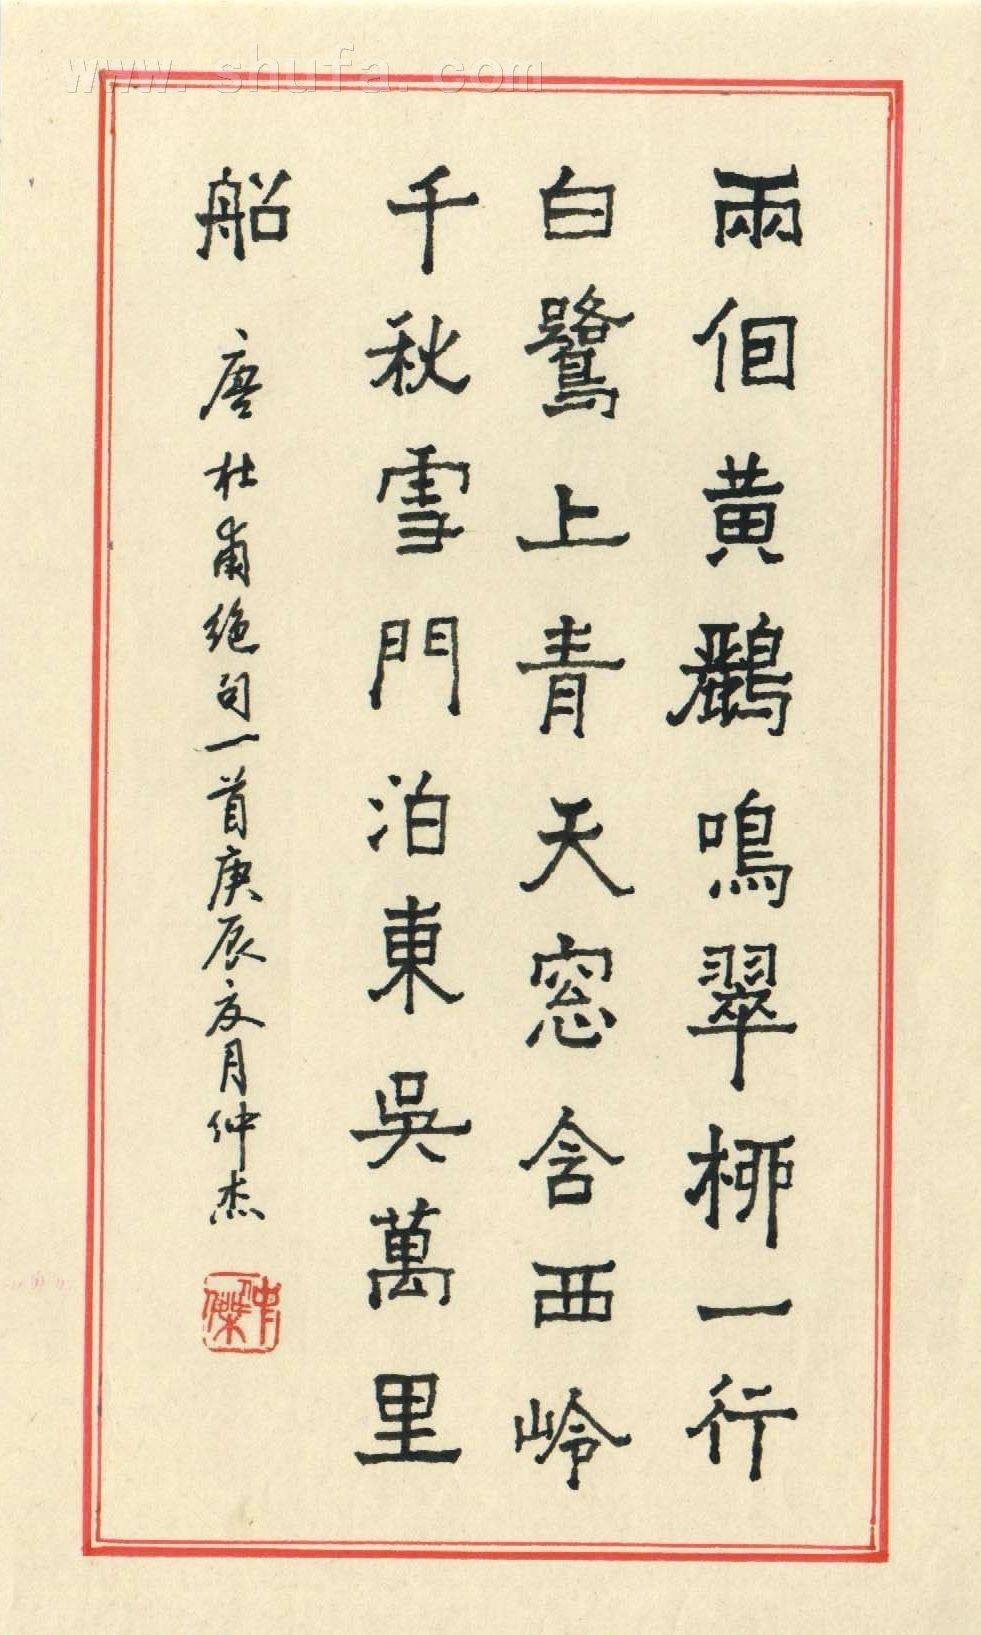 www.shufa.com
兩個黃鸝鳴翠柳一行
白鷺上青天窓含西岭
千秋雪門泊東吳萬里
船
唐杜甫绝句一首庚辰夏月仲杰
仲傑